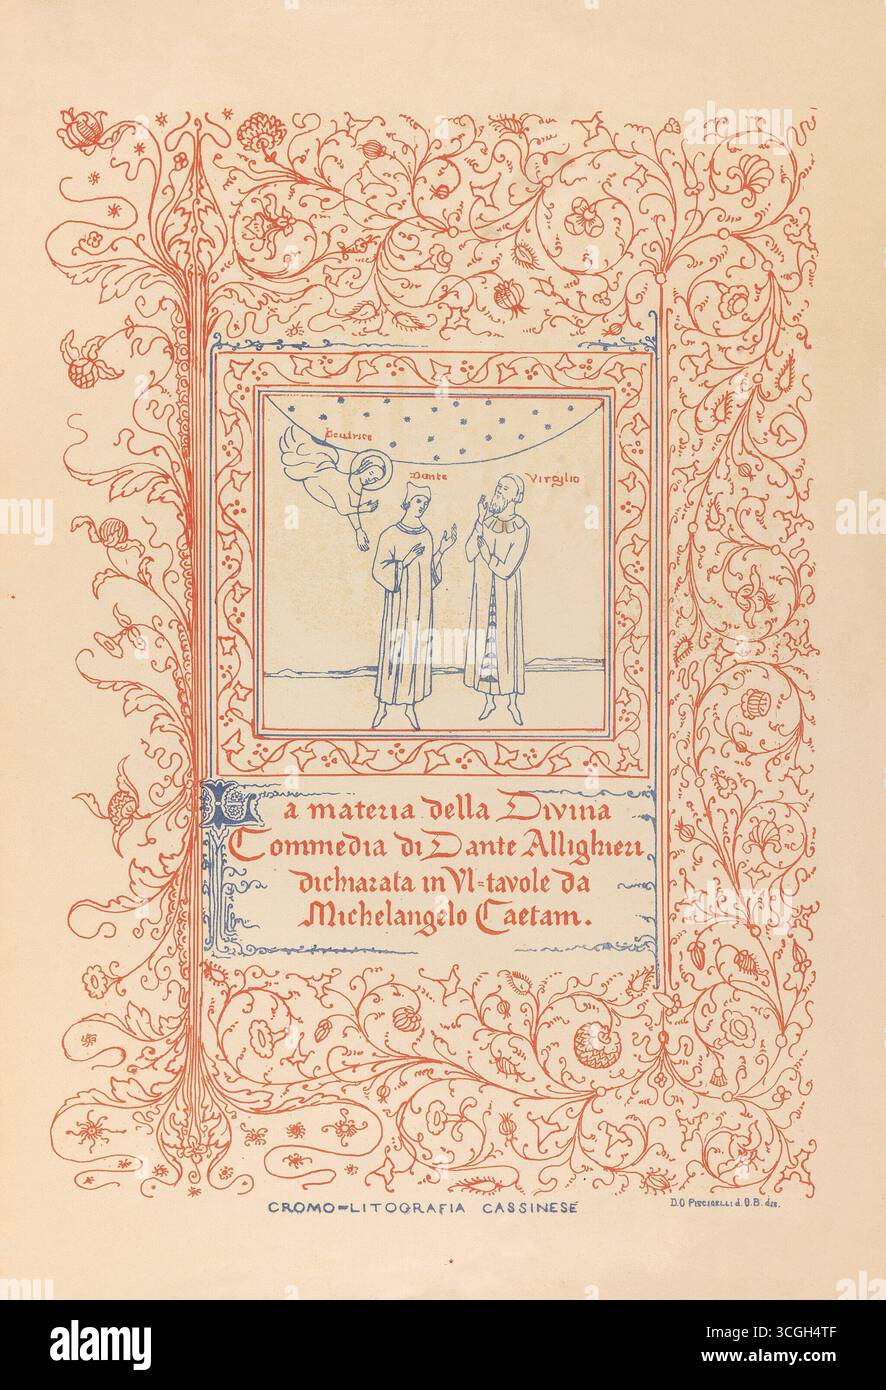 Beatrice
Dante
Virgilio
La materia della Divina
Commedia di Dante Allighieri
dichiarata in VI=tavole da
Michelangelo Caetani.
CROMO=LITOGRAFIA CASSINESE
D.O Piscicelli d. O.B. dis.
alamy
alamy
Image ID: 3CGH4TF
www.alamy.com